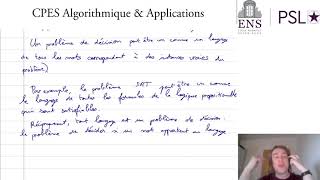 CPES Algorithmique & Applications
ENS
PSL★
Un problème de décision peut être vu comme un langage
de tous les mots correspondant à des instances vraies du
problème)
Par exemple, le problème SAT peut être vu comme
le langage de toutes les formules de la logique propositionnelle
qui sont satisfiables.
Réciproquement, tout langage est un problème de décision:
le problème de décider si un mot appartient au langage